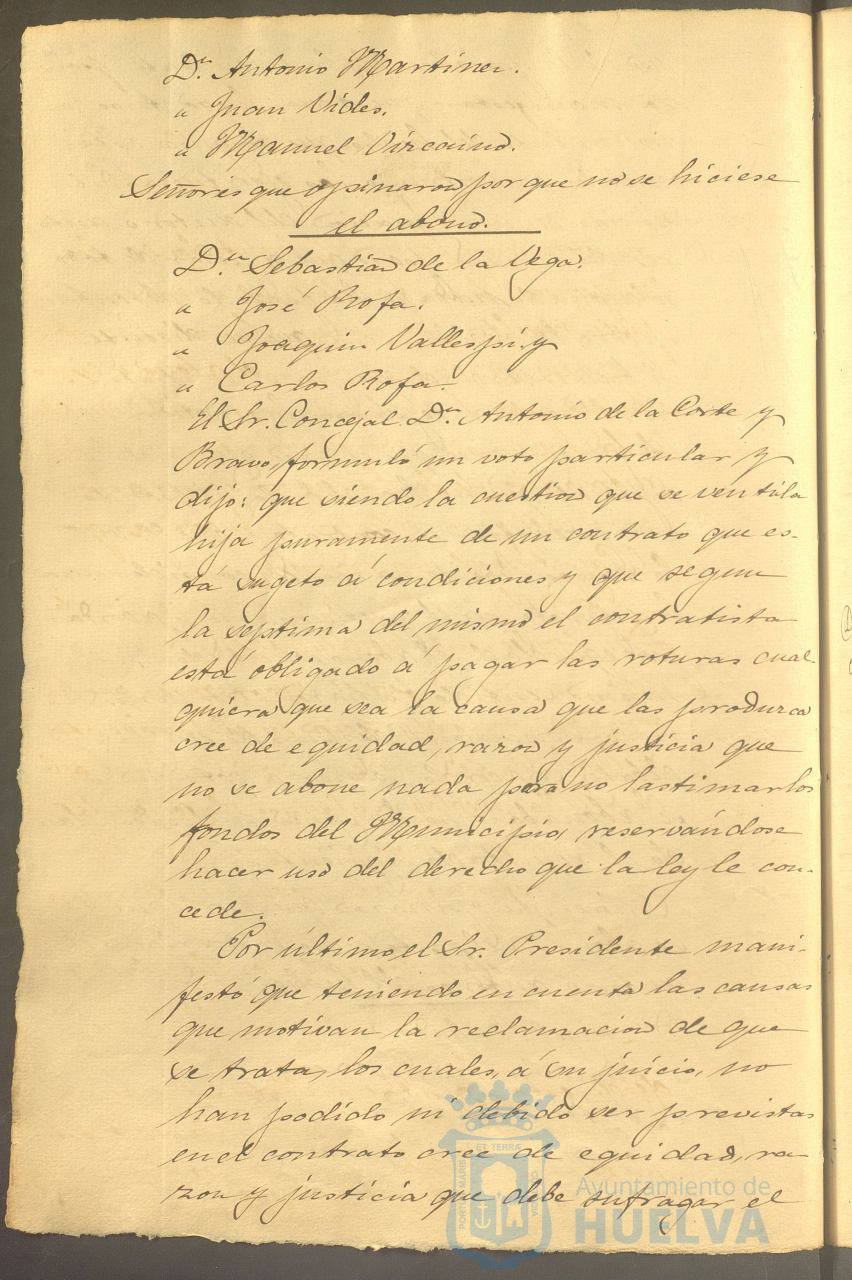 Dn. Antonio Martinez.
" Juan Vides.
" Manuel Vizcaino.
Señores que opinaron por que no se hiciese
el abono.
Dn. Sebastian de la Vega.
" José Rofa.
" Joaquin Vallespi. y
" Carlos Rofa.
El Sr. Concejal Dn. Antonio de la Corte y
Bravo, formuló un voto particular y
dijo: que siendo la cuestion que se ventila
hija puramente de un contrato que es-
tá sugeto á condiciones y que segun
la septima del mismo el contratista
está obligado á pagar las roturas cual
quiera que sea la causa que las produzca
cree de equidad, razon y justicia que
no se abone nada para no lastimar los
fondos del Municipio, reservándose
hacer uso del derecho que la ley le con-
cede.
Por último, el Sr. Presidente mani-
festó que teniendo en cuenta las causas
que motivan la reclamacion de que
se trata, los cuales, á su juicio, no
han podido ni debido ser previstas
en el contrato cree de equidad, ra
zon y justicia que debe sufragar el
PORTUS MARIS ET TERRÆ CUSTODIA
Ayuntamiento de
HUELVA